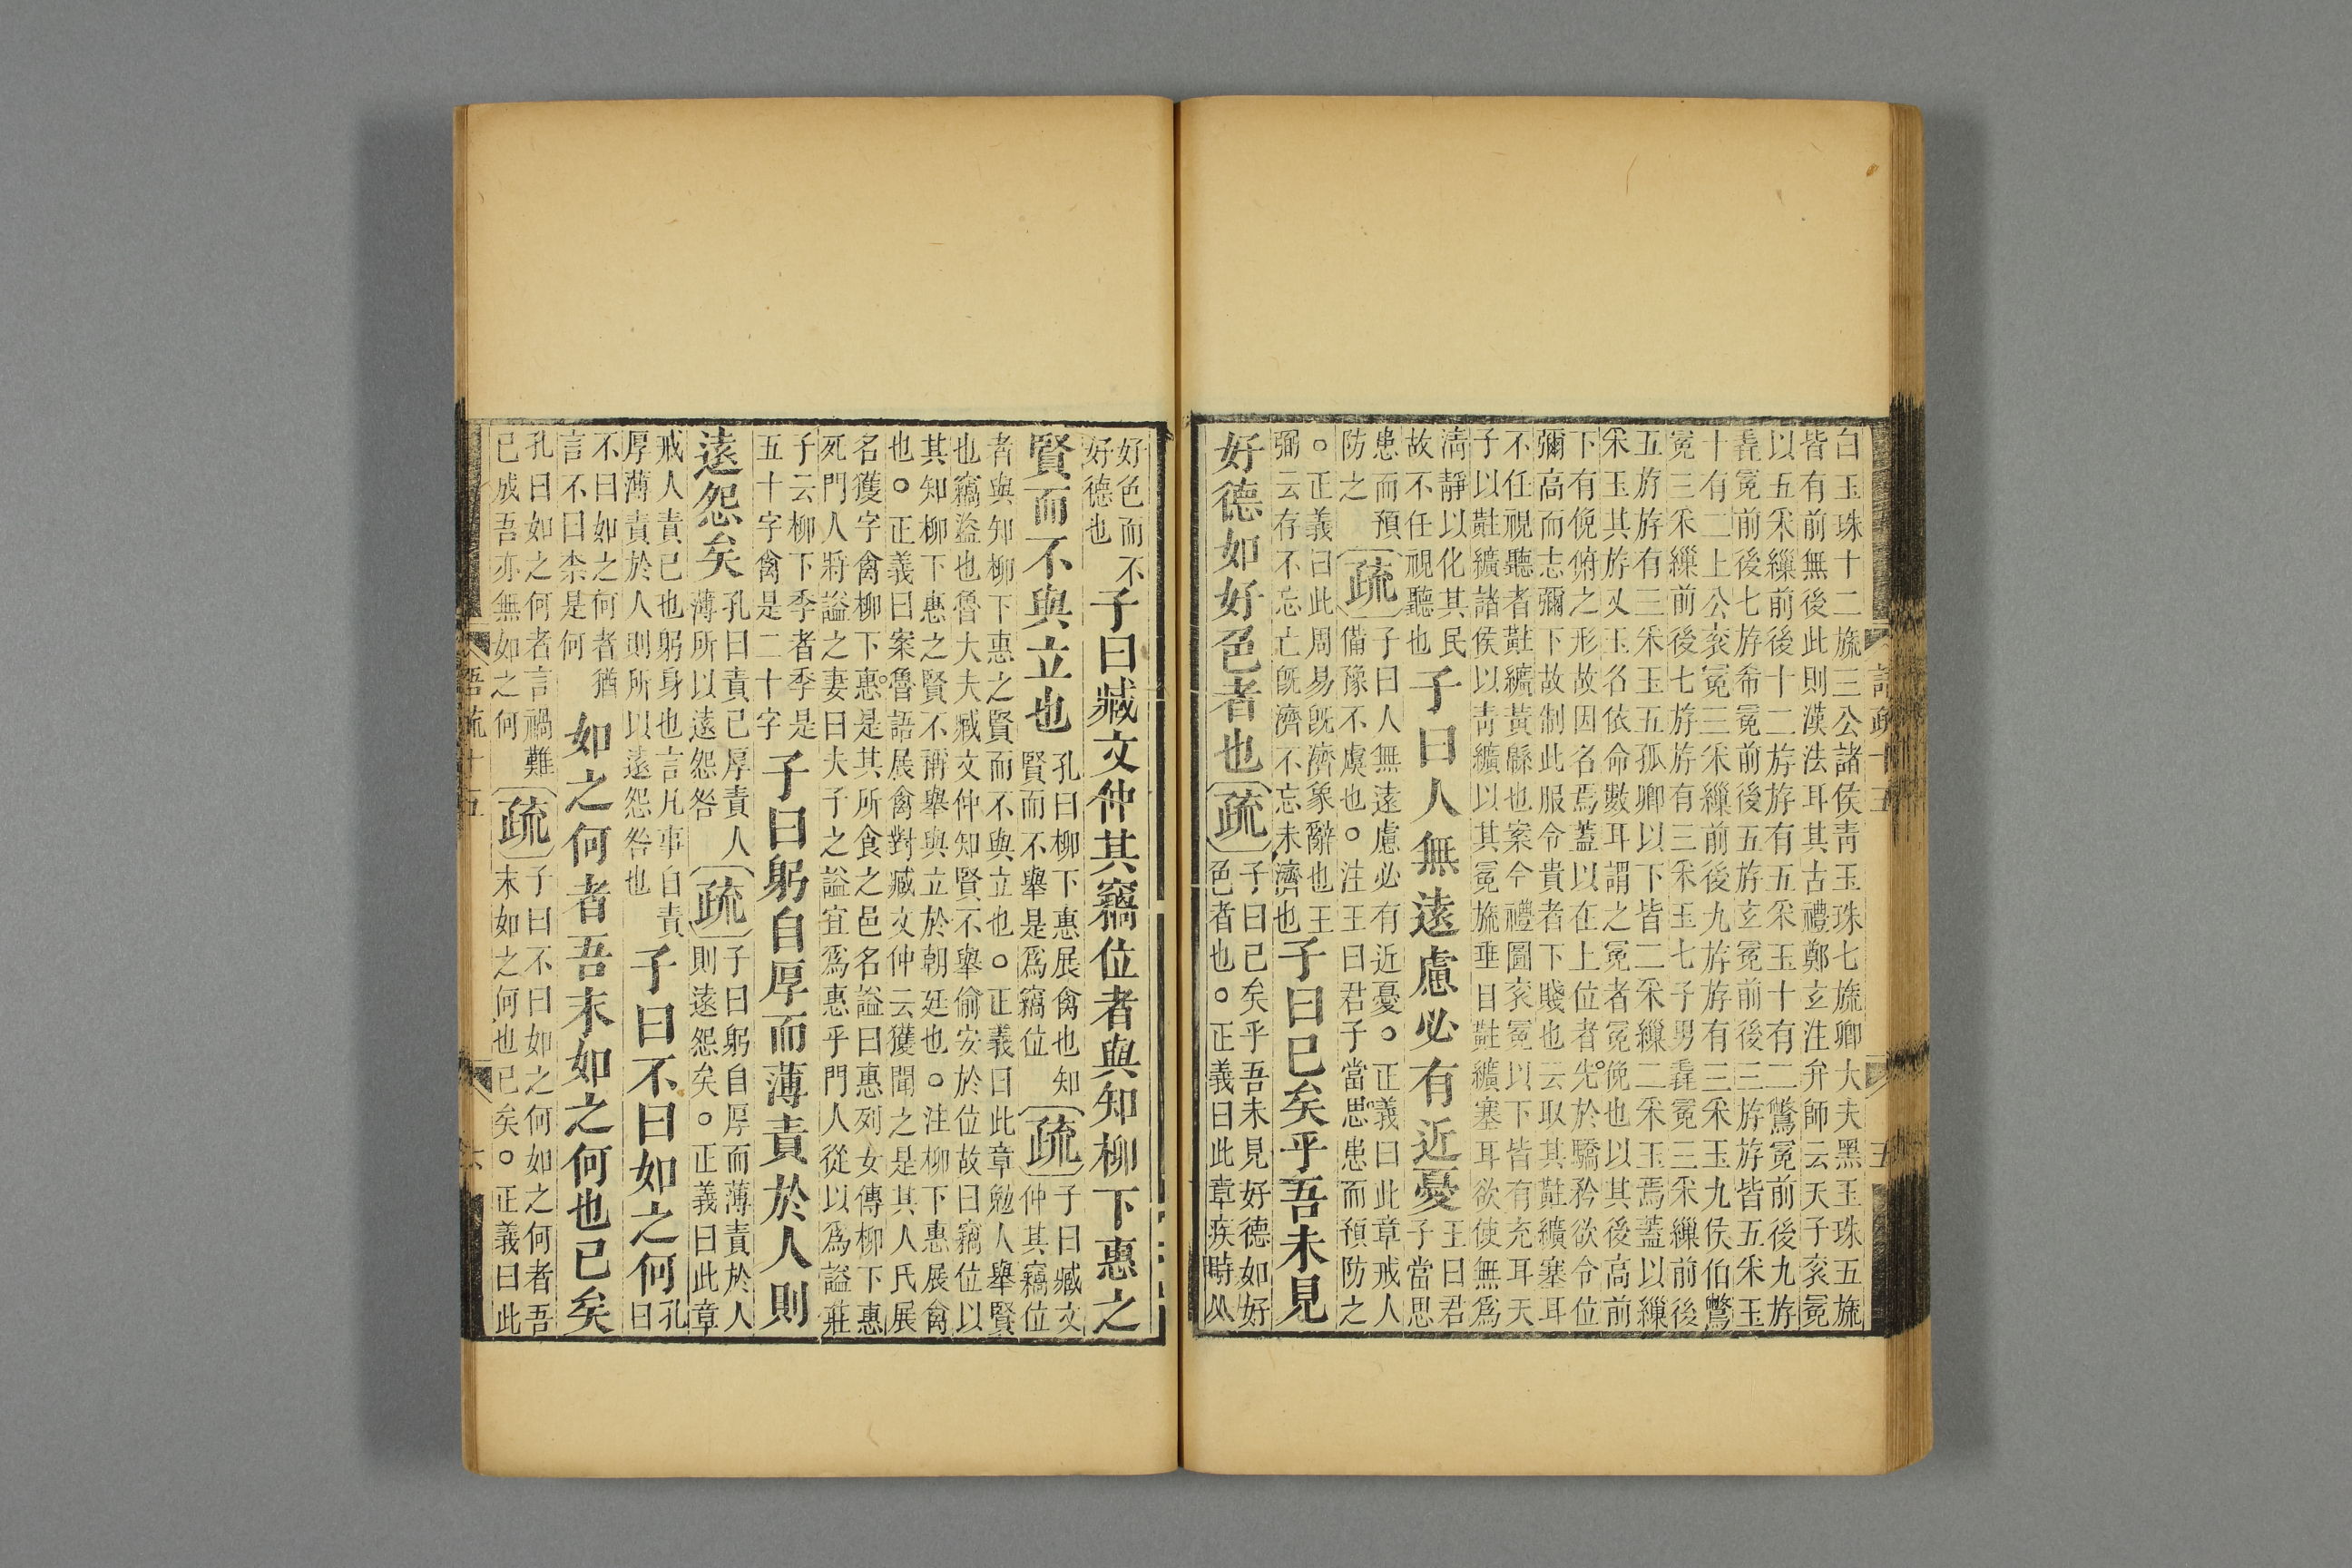 白玉珠十二旒三公諸侯青玉珠七旒卿大夫黑玉珠五旒
皆有前無後此則漢法耳其古禮鄭玄注弁師云天子衮冕
以五采繅前後十二斿斿有五采玉十有二鷩冕前後九斿
毳冕前後七斿希冕前後五斿玄冕前後三斿斿皆五采玉
十有二上公衮冕三采繅前後九斿斿有三采玉九侯伯鷩
冕三采繅前後七斿斿有三采玉七子男毳冕三采繅前後
五斿斿有三采玉五孤卿以下皆二采繅二采玉焉蓋以繅
采玉其斿乂玉名依命數耳謂之冕者冕俛也以其後高前
下有俛俯之形故因名焉蓋以在上位者先於驕矜欲令位
彌高而志彌下故制此服令貴者下賤也云取其黈纊塞耳
不任視聽者黈纊黃緜也案今禮圖衮冕以下皆有充耳天
子以黈纊諸侯以青纊以其冕旒垂目黈纊塞耳欲使無爲
淸靜以化其民
故不任視聽也
子曰人無遠慮必有近憂
王曰君
子當思
患而預
防之
疏
子曰人無遠慮必有近憂。正義曰此章戒人
備豫不虞也。注王曰君子當思患而預防之
。正義曰此周易旣濟象辭也王
弼云存不忘亡旣濟不忘未濟也
子曰已矣乎吾未見
好德如好色者也
疏
子曰已矣乎吾未見好德如好
色者也。正義曰此章疾時人
好色而不
好德也
子曰臧文仲其竊位者與知柳下惠之
賢而不與立也
孔曰柳下惠展禽也知
賢而不舉是爲竊位
疏
子曰臧文
仲其竊位
者與知柳下惠之賢而不與立也。正義曰此章勉人舉賢
也竊盜也魯大夫臧文仲知賢不舉偷安於位故曰竊位以
其知柳下惠之賢不稱舉與立於朝廷也。注柳下惠展禽
也。正義曰案魯語展禽對臧文仲云獲聞之是其人氏展
名獲字禽柳下惠是其所食之邑名謚曰惠列女傳柳下惠
死門人將謚之妻曰夫子之謚宜爲惠乎門人從以爲謚莊
子云柳下季者季是
五十字禽是二十字
子曰躬自厚而薄責於人則
遠怨矣
孔曰責己厚責人
薄所以遠怨咎
疏
子曰躬自厚而薄責於人
則遠怨矣。正義曰此章
戒人責己也躬身也言凡事自責
厚薄責於人則所以遠怨咎也
子曰不曰如之何
孔
曰
不曰如之何者猶
言不曰柰是何
如之何者吾末如之何也已矣
孔曰如之何者言禍難
已成吾亦無如之何
疏
子曰不曰如之何如之何者吾
末如之何也已矣。正義曰此